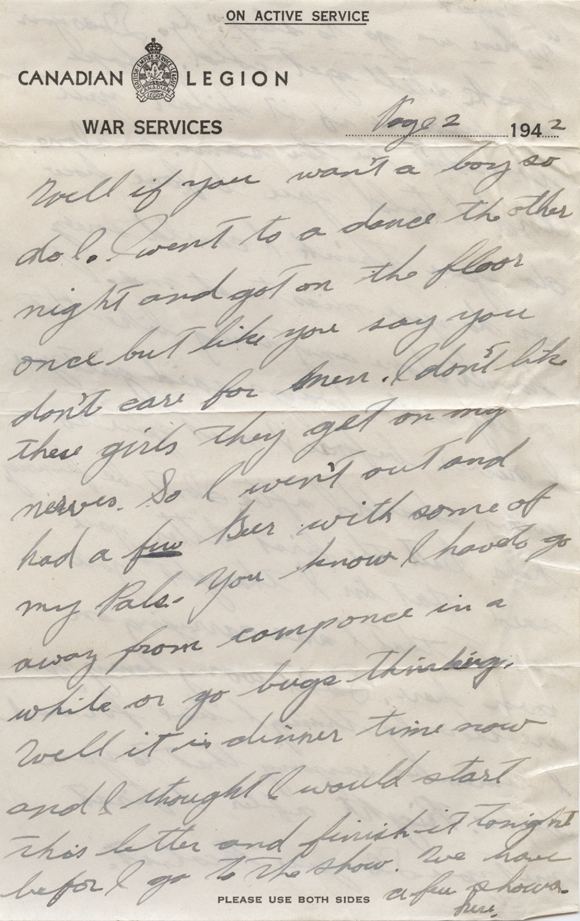 ON ACTIVE SERVICE
CANADIAN LEGION
WAR SERVICES
Page 2 1942
Well if you want a boy so
do I. I went to a dance the other
night and got on the floor
once but like you say you
don't care for men. I don't like
these girls they get on my
nerves. So I went out and
had a few Beer with some of
my Pals. You know I have to go
away from camp once in a
while or go bugs thinking.
Well it is dinner time now
and I thought I would start
this letter and finish it tonight
befor I go to the show. We have
a few shows
here
PLEASE USE BOTH SIDES